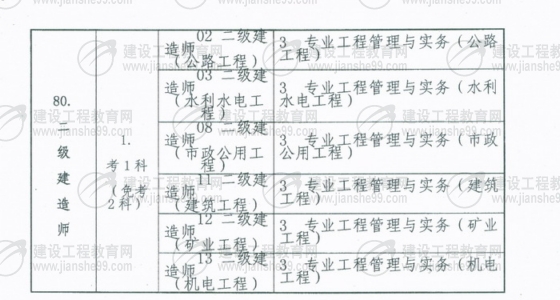 80.
二
级
建
造
师
1.
考1科
(免考
2科)
02 二级建
造师
(公路工程)
3 专业工程管理与实务(公路
工程)
03 二级建
造师
(水利水电工
程)
3 专业工程管理与实务(水利
水电工程)
08 二级建
造师
(市政公用工
程)
3 专业工程管理与实务(市政
公用工程)
11 二级建
造师
(建筑工程)
3 专业工程管理与实务(建筑
工程)
12 二级建
造师
(矿业工程)
3 专业工程管理与实务(矿业
工程)
13 二级建
造师
(机电工程)
3 专业工程管理与实务(机电
工程)
建设工程教育网
www.jianshe99.com